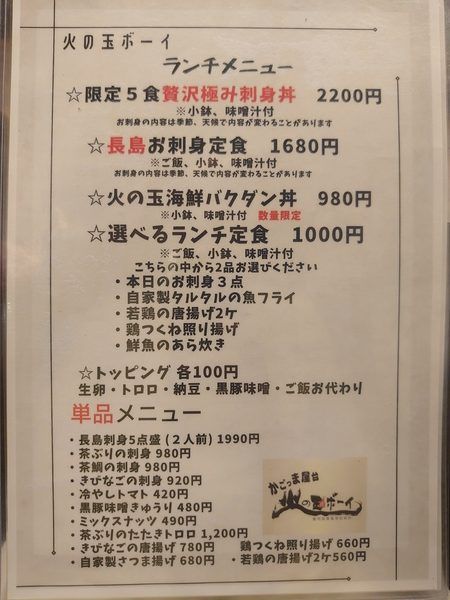 火の玉ボーイ
ランチメニュー
☆限定5食贅沢極み刺身丼 2200円
※小鉢、味噌汁付
お刺身の内容は季節、天候で内容が変わることがあります
☆長島お刺身定食 1680円
※ご飯、小鉢、味噌汁付
お刺身の内容は季節、天候で内容が変わることがあります
☆火の玉海鮮バクダン丼 980円
※小鉢、味噌汁付 数量限定
☆選べるランチ定食 1000円
※ご飯、小鉢、味噌汁付
こちらの中から2品お選びください
・本日のお刺身3点
・自家製タルタルの魚フライ
・若鶏の唐揚げ2ケ
・鶏つくね照り揚げ
・鮮魚のあら炊き
☆トッピング 各100円
生卵・トロロ・納豆・黒豚味噌・ご飯お代わり
単品メニュー
・長島刺身5点盛(2人前)1990円
・茶ぶりの刺身 980円
・茶鯛の刺身 980円
・きびなごの刺身 920円
・冷やしトマト 420円
・黒豚味噌きゅうり 480円
・ミックスナッツ 490円
・茶ぶりのたたきトロロ 1,200円
・きびなごの唐揚げ 780円 鶏つくね照り揚げ 660円
・自家製さつま揚げ 680円 ・若鶏の唐揚げ2ケ560円
かごっま屋台
火の玉ボーイ